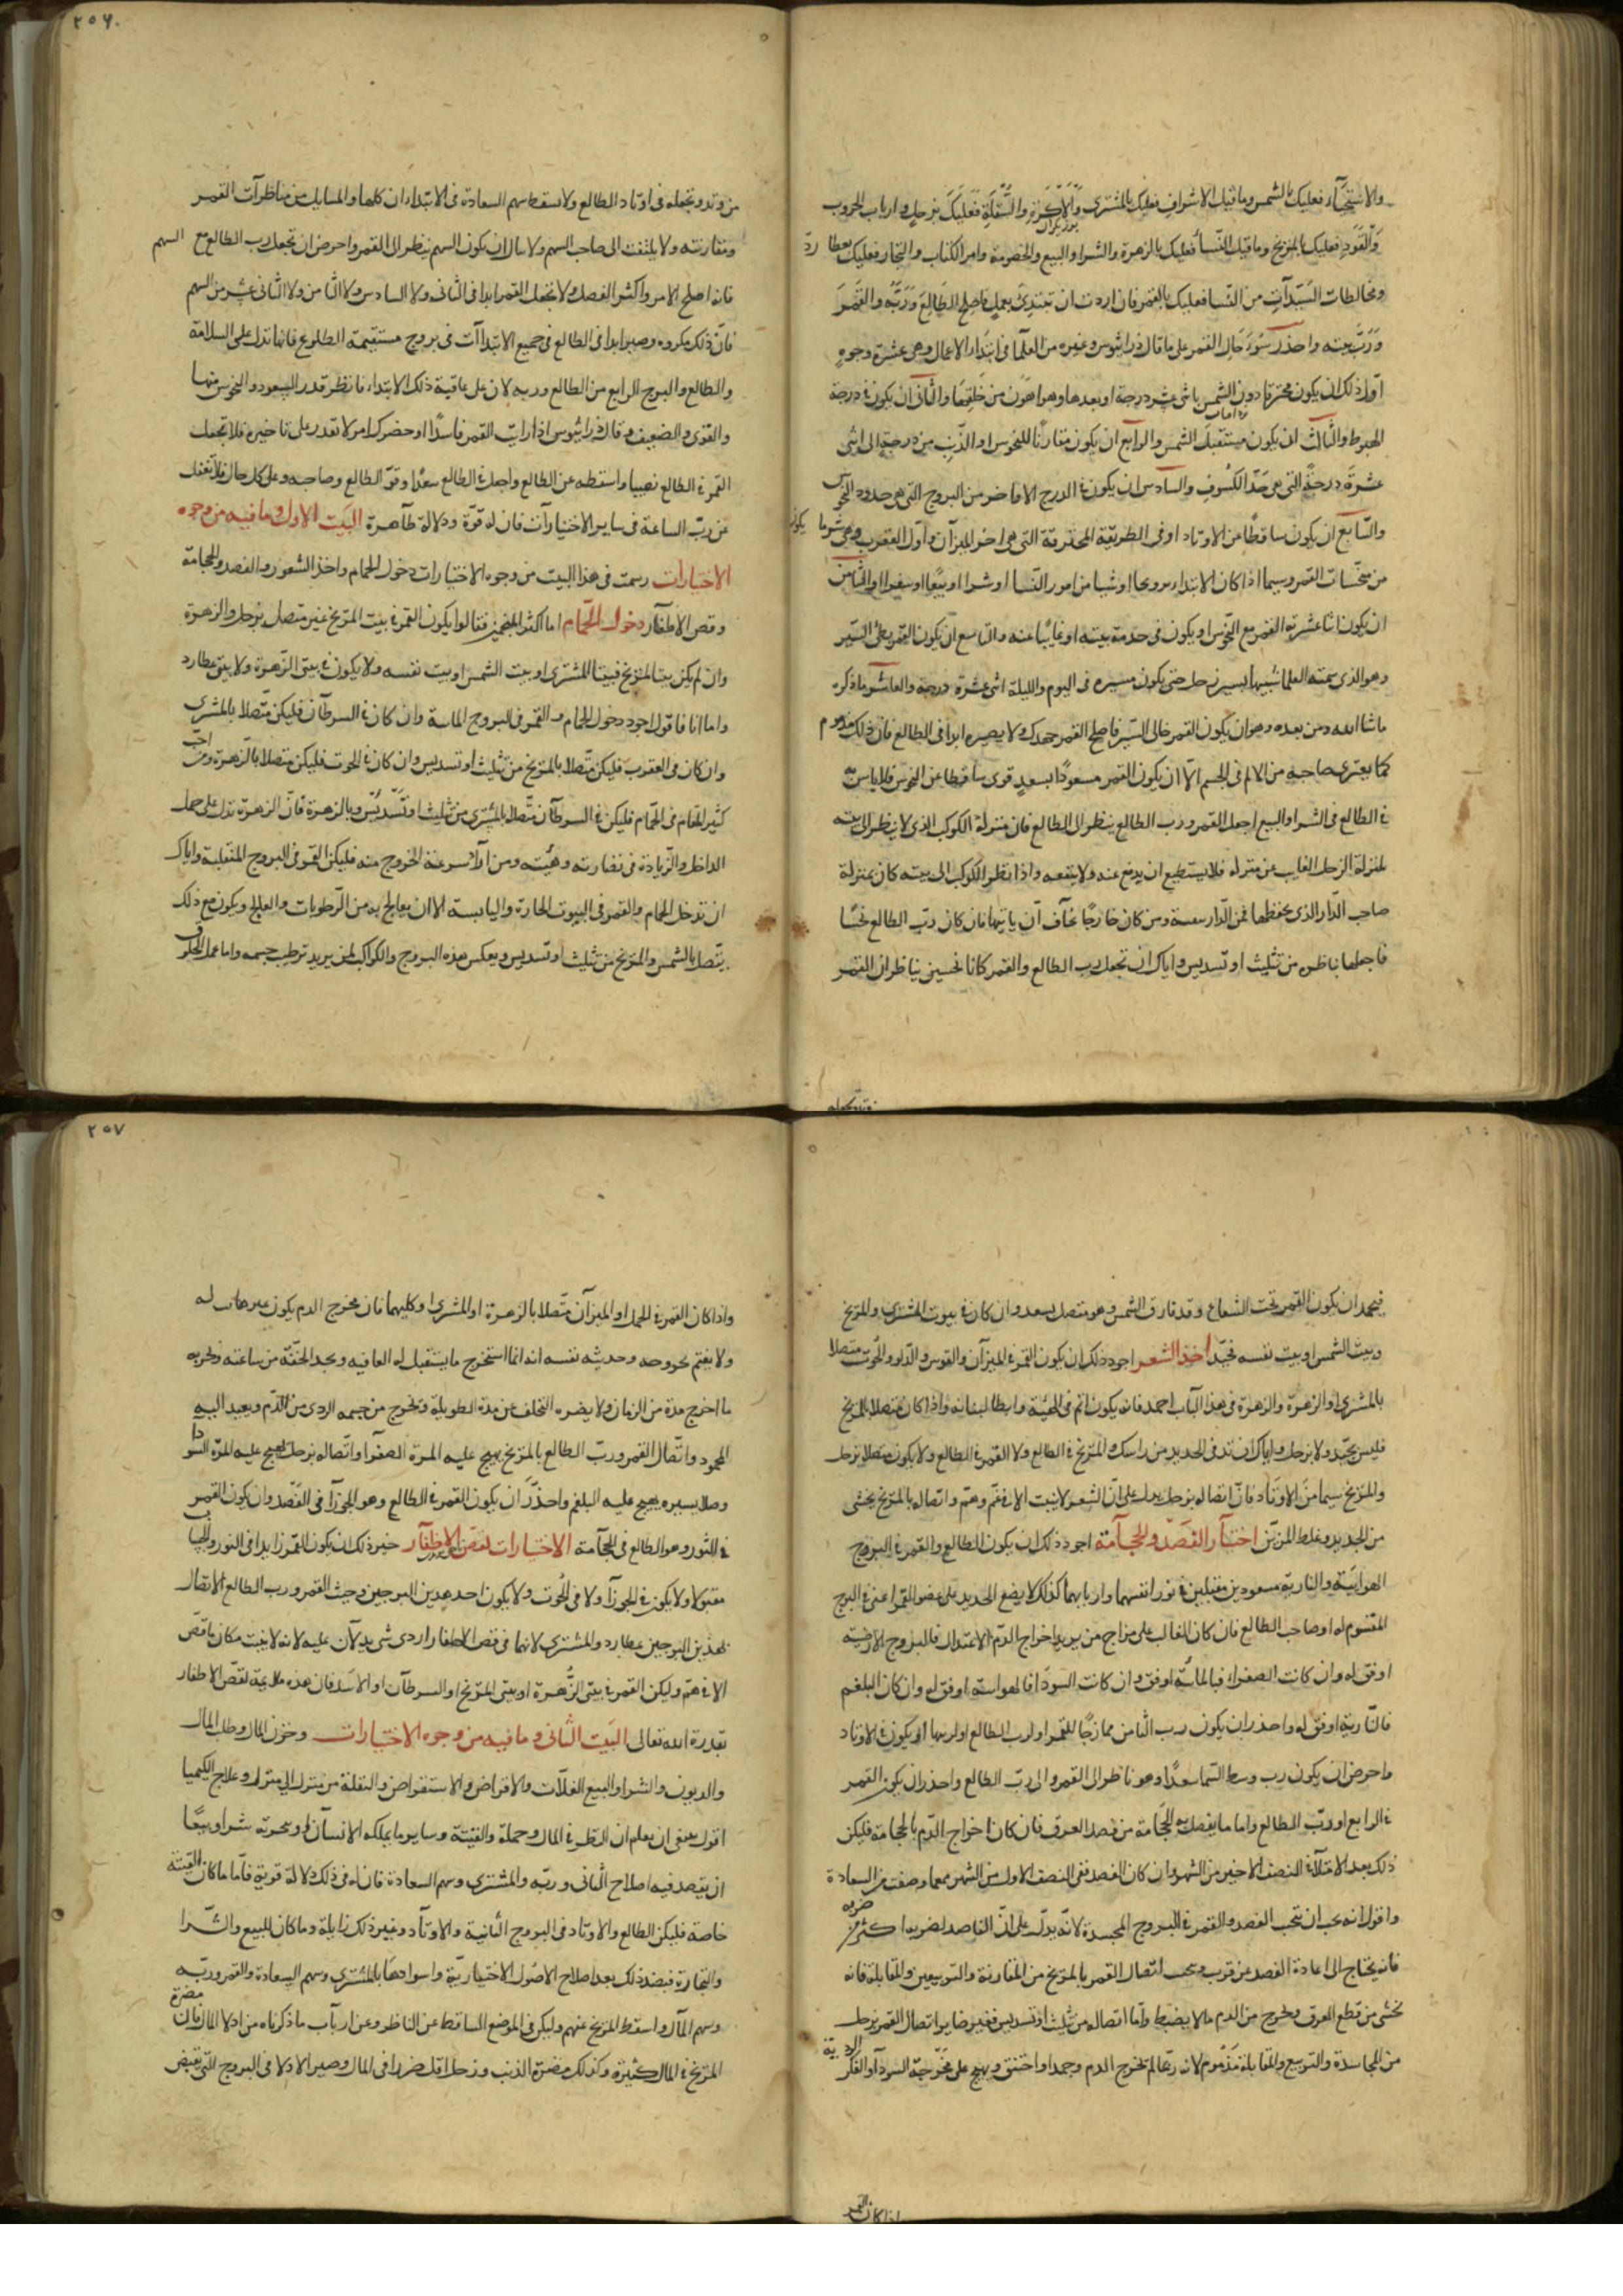 والاستخبار فعليك بالشمس وما قبل الاشراف فعليك بالمشترى والاكرة والسفلة فعليك بزحل وارباب الحروب
والقود فعليك بالمريخ وما قبل النسا فعليك بالزهرة والشرا والبيع والخصومة وامر الكتاب والتجار فعليك بعطارد
ومخالطات السيدات من النسا فعليك بالقمر فان اردت ان تبتدئ بعمل فاصلح الطالع وربه والقمر
ورب بيته واحذر سوء حال القمر على ما قال ذراثيوس وغيره من العلما فى ابتداء الاعمال وهى عشرة وجوه
اول ذلك ان يكون محترقا دون الشمس باثنى عشر درجة او بعدها وهو اهون من خلفها والثانى ان يكون فى درجة
الهبوط والثالث ان يكون مستقبل الشمس والرابع ان يكون مقارنا للنحوس او الذنب من درجة الى اثنى
عشرة درجة التى هى حد الكسوف والسادس ان يكون فى الدرج الاواخر من البروج التى هى حدود النحوس
والسابع ان يكون ساقطا عن الاوتاد او فى الطريقة المحترقة التى هى اخر الميزان واول العقرب وهى شر ما يكون
من منحسات القمر وسيما اذا كان الابتداء تزويجا او شيا من امور النسا او شرا او بيعا او سفرا والثامن
ان يكون اثنا عشرية القمر مع النحوس او يكون فى حدمة بيته او غايبا عنه والتاسع ان يكون القمر بطئ السير
وهو الذى سمته العلما شبيها بسير زحل حتى يكون مسيره فى اليوم والليلة اثنى عشرة درجة والعاشر ما ذكره
ماشاالله ومن بعده وهو ان يكون القمر خالى السير فاصلح القمر جهدك ولا يصيره ابدا فى الطالع فان ذلك مذموم
كما يعترى صاحبه من الالم فى الجسم الا ان يكون القمر مسعودا بسعد قوى ساقطا عن النحوس فلا باس به
فى الطالع فى الشرا والبيع اجعل القمر ورب الطالع ينظر الى الطالع فان منزلة الكوكب الذى لا ينظر الى بيته
بمنزلة الرجل الغايب عن منزله فلا يستطيع ان يدفع عنه ولا ينفعه واذا نظر الكوكب الى بيته كان بمنزلة
صاحب الدار الذى يحفظها فمن الدار سعسة ومن كان خارجا خاف ان ياتيها فان كان رب الطالع نحسا
فاجعلها ناظره من تثليث او تسديس واياك ان تجعل رب الطالع والقمر كانا نحسين يناظران القمر
٢٥٦
من وتد وتجعله فى اوتاد الطالع ولا تسقط سهم السعادة فى الابتداءات كلها والمسايل من مناظرات القمر
ومقارنته ولا يلتفت الى صاحب السهم ولا تبال ان يكون السهم ينظر الى القمر واحرص ان تجعل رب الطالع مع السهم
فانه اصلح الامر واكثر الفضل ولا تجعل القمر ابدا فى الثانى ولا السادس ولا الثامن ولا الثانى عشر من السهم
فان ذلك مكروه وصير ابدا فى الطالع فى جميع الابتداآت فى بروج مستقيمة الطلوع فانها تدل على السلامة
والطالع والبرج الرابع من الطالع وربه لان على عاقبة ذلك الابتداء فانظر قدر السعود والنحوس منها
والقوى والضعيف وقال ذراثيوس اذا رايت القمر فاسدا او حضرك امر لا تقدر على تاخيره فلا تجعل
القمر فى الطالع نصيبا واسقطه عن الطالع واجعل فى الطالع سعدا وقو الطالع وصاحبه وعلى كل حال فلا تغفل
عن رب الساعة فى ساير الاختيارات فان له قوة ودلالة ظاهرة البيت الاول وما فيه من وجوه
الاختيارات رسمت فى هذا البيت من وجوه الاختيارات دخول الحمام واخذ الشعور والفصد والحجامة
وقص الاظفار دخول الحمام اما اكثر المنجمين فقالوا يكون القمر فى بيت المريخ غير متصل بزحل والزهرة
وان لم يكن بيتا للمريخ فبيتا للمشترى او بيت الشمس او بيت نفسه ولا يكون فى بيتى الزهرة ولا بيتى عطارد
واما انا فاقول اجود دخول الحمام والقمر فى البروج المائية وان كان فى السرطان فليكن متصلا بالمشترى
وان كان فى العقرب فليكن متصلا بالمريخ من تثليث او تسديس وان كان فى الحوت فليكن متصلا بالزهرة ومن احب
كثير المقام فى الحمام فليكن فى السرطان متصلا بالمشترى من تثليث او تسديس وبالزهرة فان الزهرة تدل على جمال
الداخل والزيادة فى نضارته وهيئته ومن اراد سرعة الخروج منه فليكن القمر فى البروج المنقلبة واياك
ان تدخل الحمام والقمر فى البيوت الحارة واليابسة الا ان يعالج به من الرطوبات والعلاج ويكون مع ذلك
يتصل بالشمس والمريخ من تثليث او تسديس وبعكس هذه البروج والكواكب لمن يريد ترطيب جسمه واما عمل الحلوق
فيحمد ان يكون القمر تحت الشعاع وقد فارق الشمس وهو متصل بسعد وان كان فى بيوت المشترى والمريخ
وبيت الشمس او بيت نفسه فجيد اخذ الشعر اجود ذلك ان يكون القمر فى الميزان والقوس والدلو والحوت متصلا
بالمشترى او الزهرة والزهرة فى هذا الباب احمد فانه يكون اتم فى الهيئة وابطا لنباته واذا كان متصلا بالمريخ
فليس بجيد ولا بزحل واياك ان تدنى الحديد من راسك والمريخ فى الطالع ولا القمر فى الطالع ولا يكون متصلا بزحل
والمريخ سيما من الاوتاد فان اتصاله بزحل يدل على ان الشعر لا ينبت الا فى غم وهم واتصاله بالمريخ يخشى
من الحديد وغلط المزين اختيار الفصد والحجامة اجود ذلك ان يكون الطالع والقمر فى البروج
الهوائية والنارية مسعودين مقبلين فى نور انفسهما واربابهما كذلك لا يضع الحديد على عضو القمر اعنى فى البرج
المقسوم له او صاحب الطالع فان كان الغالب على مزاج من يريد اخراج الدم الاعتدال فالبروج الارضية
اوفق له وان كانت الصفراء فبالمائية اوفق وان كانت السودا فالهوائية اوفق له وان كان البلغم
فالنارية اوفق له واحذر ان يكون رب الثامن ممازجا للقمر او لرب الطالع او لربها او يكون فى الاوتاد
واحرص ان يكون رب وسط السما سعدا وهو ناظر الى القمر والى رب الطالع واحذر ان يكون القمر
فى الرابع او رب الطالع واما ما يفصل به الحجامة من فصد العرق فان كان اخراج الدم بالحجامة فليكن
ذلك بعد الامتلاء النصف الاخير من الشهر وان كان الفصد ففى النصف الاول من الشهر معما وصفت من السعادة
واقول انه يجب ان تتجنب الفصد والقمر فى البروج المجسدة لانه يدل على ان الفاصد لضربه اكثر من ضربه
فانه يحتاج الى اعادة الفصد عن قرب ويجب اتصال القمر بالمريخ من المقارنة والتربيعين والمقابلة فانه
يخشى من قطع العرق ويخرج من الدم ما لا يضبط واما اتصاله من تثليث او تسديس فغير ضاير واتصال القمر بزحل
من المجاسدة والتربيع والمقابلة مذموم لانه ربما لم يخرج الدم وجمد او اختنق ويهيج على مخرجه السودا والفكر الردية
٢٥٧
واذا كان القمر فى الحمل او الميزان متصلا بالزهرة او المشترى او كليهما فان مخرج الدم يكون غير هائب له
ولا يغتم لخروجه وحديثه نفسه انه انما استخرج ما يستقبل له العافيه ويجد الخفة من ساعته ولحربه
ما اخرج مدة من الزمان ولا يضره التخلف عن مدة الطويلة ويخرج من جسمه الردى من الدم ويعيد اليه
المحمود واتصال القمر ورب الطالع بالمريخ يهيج عليه المرة الصفرا واتصاله بزحل يهيج عليه المرة السودا
وصلابسيره يهيج عليه البلغم واحذر ان يكون القمر فى الطالع وهو الجوزا فى الفصد وان يكون القمر
فى الثور وهو الطالع فى الحجامة الاختيارات لقص الاظفار خير ذلك ان يكون القمر زايدا فى النور والحساب
مقبولا ولا يكون فى الجوزا ولا فى الحوت ولا يكون احد هذين البرجين وحيث القمر ورب الطالع الاتصال
لهذين البرجين عطارد والمشترى لانهما فى قص الاظفار اردى شئ يدلان عليه لانه لا ينبت مكان ما قص
الا فى هم وليكن القمر فى بيتى الزهرة او بيتى المريخ او السرطان او الاسد فان هذه ملايمة لقص الاظفار
بقدرة الله تعالى البيت الثانى وما فيه من وجوه الاختيارات وخزن المال وطلب المال
والديون والشرا والبيع الغلات والاقراض والاستقراض والنقلة من منزل الى منزل وعلاج الكيميا
اقول ينبغى ان يعلم ان النظر فى المال وجملة والقنية وساير ما يملكه الانسان او يتجر به شرا وبيعا
ان يقصد فيه اصلاح الثانى وربه والمشترى وسهم السعادة فان له فى ذلك دلالة قوية فاما ما كان القنية
خاصة فليكن الطالع والاوتاد فى البروج الثابتة والاوتاد وغير ذلك زايلة وما كان للبيع والشرا
والتجارة فبضد ذلك بعد اصلاح الاصول الاختيارية واسوادها بالمشترى وسهم السعادة والقمر وربه
وسهم المال واسقط المريخ عنهم وليكن فى الموضع الساقط عن الناظر وعن ارباب ما ذكرناه من ادلا المال فان مضرة
المريخ فى المال كثيرة وكذلك مضرة الذنب وزحل اقل ضررا فى المال وصير الادلا فى البروج التى تقتضى